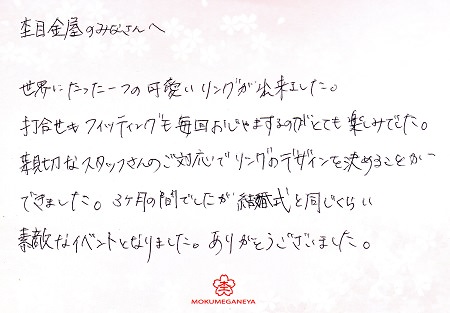 杢目金屋のみなさんへ
世界にたった一つの可愛いリングが出来ました。
打合せもフィッティングも毎回おじゃまするのがとても楽しみでした。
親切なスタッフさんのご対応でリングのデザインを決めることが
できました。3ヶ月の間でしたが結婚式と同じくらい
素敵なイベントとなりました。ありがとうございました。
MOKUMEGANEYA